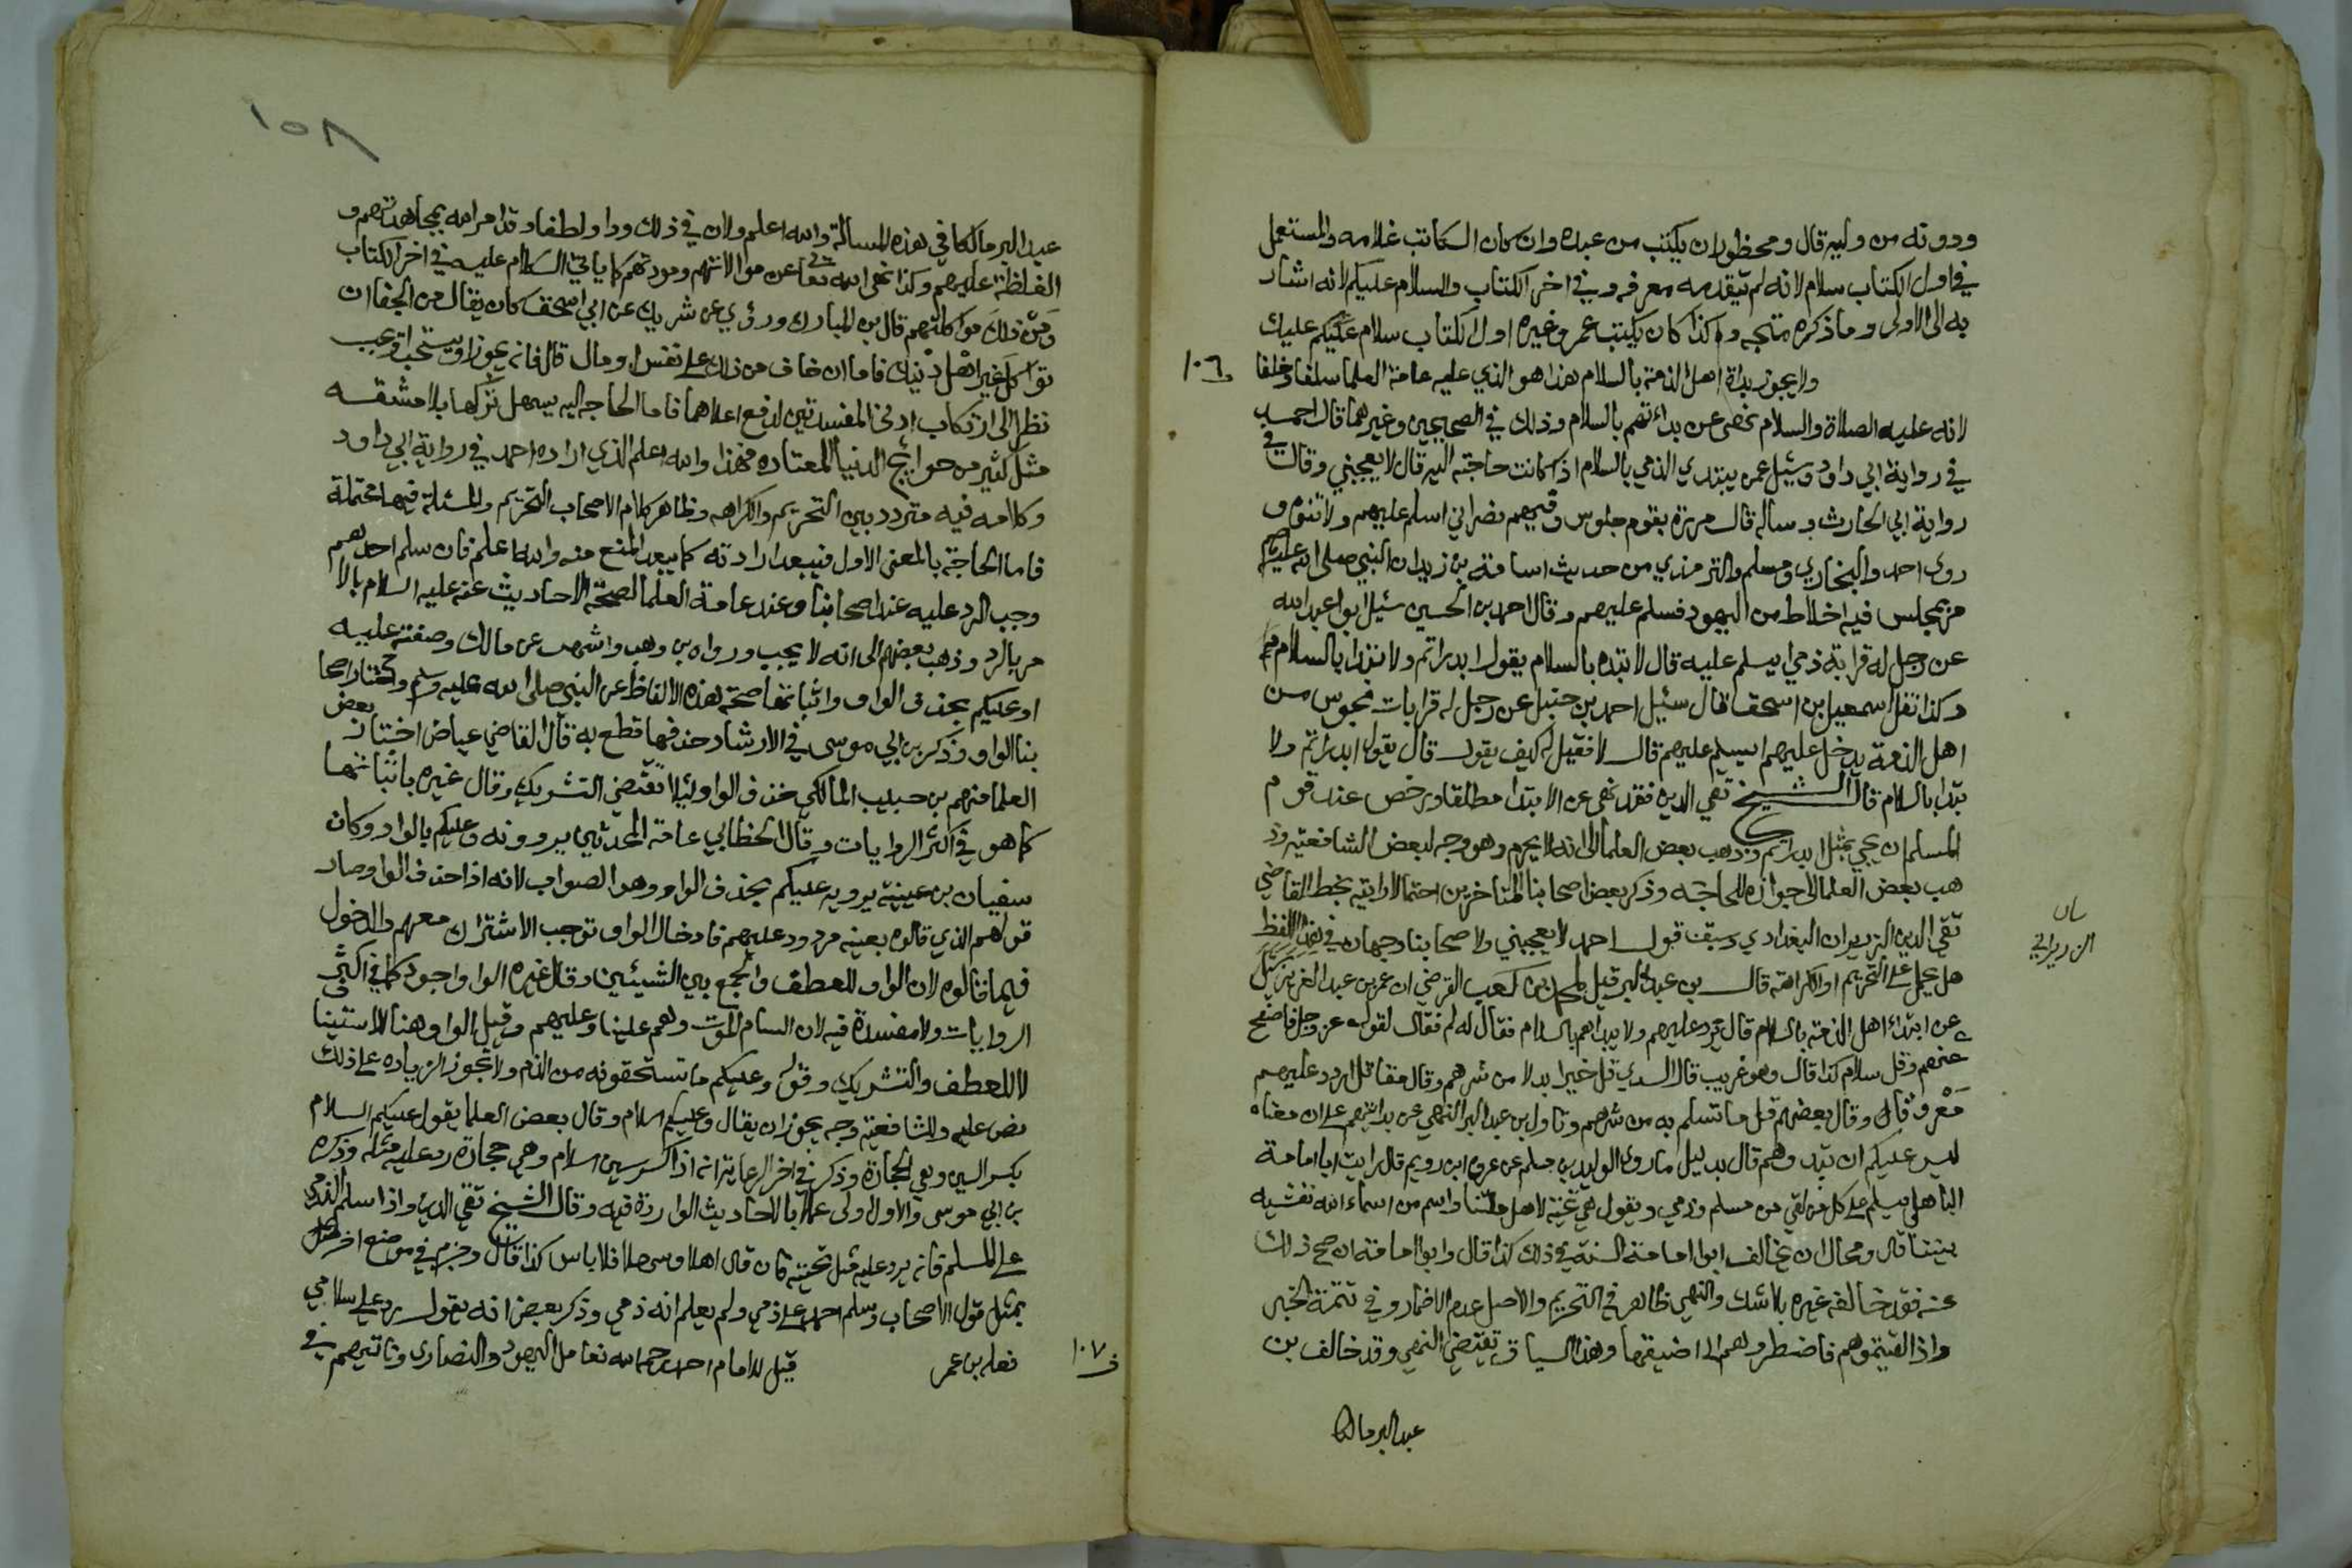 ودونه من وليه قال ومحظور ان يكتب من عبده وان كان الكاتب غلامه والمستعمل
في اول الكتاب سلام لانه لم يتقدمه معرفه وفي اخر الكتاب والسلام عليكم لانه اشار
به الى الاولى وما ذكره متجه وكذا كان يكتب عمر وغيره اول الكتاب سلام عليك
ولا يجوز بداة اهل الذمة بالسلام هذا هو الذي عليه عامة العلما سلفا وخلفا
١٠٦
لانه عليه الصلاة والسلام نهى عن بداتهم بالسلام وذلك في الصحيحين وغيرهما قال احمد
في رواية ابي داود وسئل عمن يبتدي الذمي بالسلام اذا كانت حاجته اليه قال لا يعجبني وقال في
رواية ابي الحارث وساله قال مررنا بقوم جلوس وفيهم نصراني اسلم عليهم ولا تنوه و
روى احمد والبخاري ومسلم والترمذي من حديث اسامة بن زيد ان النبي صلى الله عليه وسلم
مر بمجلس فيه اخلاط من اليهود فسلم عليهم وقال احمد بن الحسين سئل ابو عبد الله
عن رجل له قرابة ذمي ايسلم عليه قال لا تبده بالسلام يقول ابدراتم ولا تبدا بالسلام
وكذا نقل اسمعيل بن اسحق قال سئيل احمد بن حنبل عن رجل له قرابات مجوس من
اهل الذمة يدخل عليهم ايسلم عليهم قال لا فقيل له كيف يقول قال يقول ابدراتم ولا
تبدا بالسلام قال الشيخ تقي الدين فقد نهى عن الابتدا مطلقا ورخص عند قدوم
المسلم ان يجي بمثل ابدراتم وذهب بعض العلما الى انه لا يحرم وهو وجه لبعض الشافعيه وذ
هب بعض العلما الى جوازه للحاجه وذكر بعض اصحابنا المتاخرين احتمالا رايته بخط القاضي
تقي الدين الزريران البغدادي وسبقت قول احمد لا يعجبني ولاصحابنا وجهان في هذا اللفظ
بيان
الزريراني
هل يحمل على التحريم او الكراهة قال بن عبد البر قيل لمحمد بن كعب القرضي ان عمر بن عبد العزيز سئل
عن ابتداء اهل الذمة بالسلام قال نرد عليهم ولا نبداهم بالسلام فقال له لم فقال لقوله عز وجل فاصفح
عنهم وقل سلام كذا قال وهو غريب قال السدي قل خيرا بدلا من شرهم وقال مقاتل اردد عليهم
معروفا وقال بعضهم قل ما تسلم به من شرهم وتاول بن عبد البر النهي عن بداتهم على ان معناه
ليس عليكم ان تبدوهم قال بدليل ما روى الوليد بن مسلم عن عروه ابن رويم قال رايت ابا امامة
الباهلي يسلم على كل من لقي من مسلم وذمي ويقول هي تحية لاهل ملتنا واسم من اسماء الله نفشيه
بيننا قال ومحال ان يخالف ابو امامة السنة في ذلك كذا قال وابو امامة ان صح ذلك
عنه فقد خالفه غيره بلا شك والنهي ظاهر في التحريم والاصل عدم الاضمار وفي تتمة الخبر
واذا لقيتموهم فاضطروهم الى اضيقها وهذا السياق يقتضي النهي وقد خالف بن
عبد البر مالكا
١٥٨
عبد البر مالكا في هذه المسالة والله اعلم ولان في ذلك ودا ولطفا وقد امر الله بمجاهدتهم و
الغلظة عليهم وكذا نهى الله تعالى عن موالاتهم ومودتهم كما ياتي الكلام عليه في اخر الكتاب
ومن ذلك مواكلتهم قال بن المبارك وروي عن شريك عن ابي اسحق كان يقال من الجفا ان
تواكل غير اهل دينك فاما ان خاف من ذلك على نفس او مال قال فانه يجوز او يستحب او يجب
نظرا الى ارتكاب ادنى المفسدتين لدفع اعلاهما فاما الحاجه اليه يسهل تركها بلا مشقه
مثل كثير من حوايج الدنيا المعتاده فهذا والله اعلم الذي اراده احمد في رواية ابي داود
وكلامه فيه متردد بين التحريم والكراهه وظاهر كلام الاصحاب التحريم والمسئلة فيها محتملة
فاما الحاجة بالمعنى الاول فيبعد ارادته كما يبعد المنع منه والله اعلم فان سلم احدهم
وجب الرد عليه عند اصحابنا وعند عامة العلما لصحة الاحاديث عنه عليه السلام بالا
مر بالرد وذهب بعضهم الى انه لا يجب ورواه بن وهب واشهب عن مالك وصفته عليه
او عليكم بحذف الواو واثباتها صحة هذه الالفاظ عن النبي صلى الله عليه وسلم واختار اصحا
بنا الواو وذكر بن ابي موسى في الارشاد حذفها قطع به قال القاضي عياض اختار بعض
العلما منهم بن حبيب المالكي حذف الواو ليلا تقتضي التشريك وقال غيره باثباتها
كما هو في اكثر الروايات وقال الخطابي عامة المحدثين يروونه وعليكم بالواو وكان
سفيان بن عيينة يرويه عليكم بحذف الواو وهو الصواب لانه اذا حذف الواو صار
قولهم الذي قالوه بعينه مردود عليهم فادخال الواو توجب الاشتراك معهم والدخول
فيما قالوه لان الواو للعطف والجمع بين الشيئين وقال غيره الواو اجود كما في اكثر
الروايات ولا مفسدة فيه لان السام الموت وهو علينا وعليهم وقيل الواو هنا للاستينا
ف
لا للعطف والتشريك وقوله وعليكم ما تستحقونه من الذم ولا تجوز الزياده على ذلك
نص عليه وللشافعية وجه يجوز ان يقال وعليكم السلام وقال بعض العلما يقول عليكم السلام
بكسر السين وهي الحجارة وذكر في اخر الرعاية انه اذا كسر سين السلام وهي حجارة رد عليه مثله وذكره
بن ابي موسى والاول اولى عملا بالاحاديث الواردة فيه وقال الشيخ تقي الدين واذا سلم الذمي
على المسلم فانه يرد عليه مثل تحيته فان قال اهلا وسهلا فلا باس كذا قال وجزم في موضع اخر
بمثل قول الاصحاب وسلم احمد على ذمي ولم يعلم انه ذمي وذكر بعض انه يقول رد علي سلامي
فعله بن عمر قيل للامام احمد رحمه الله نعامل اليهود والنصارى وناتيهم في
ف ١٠٧